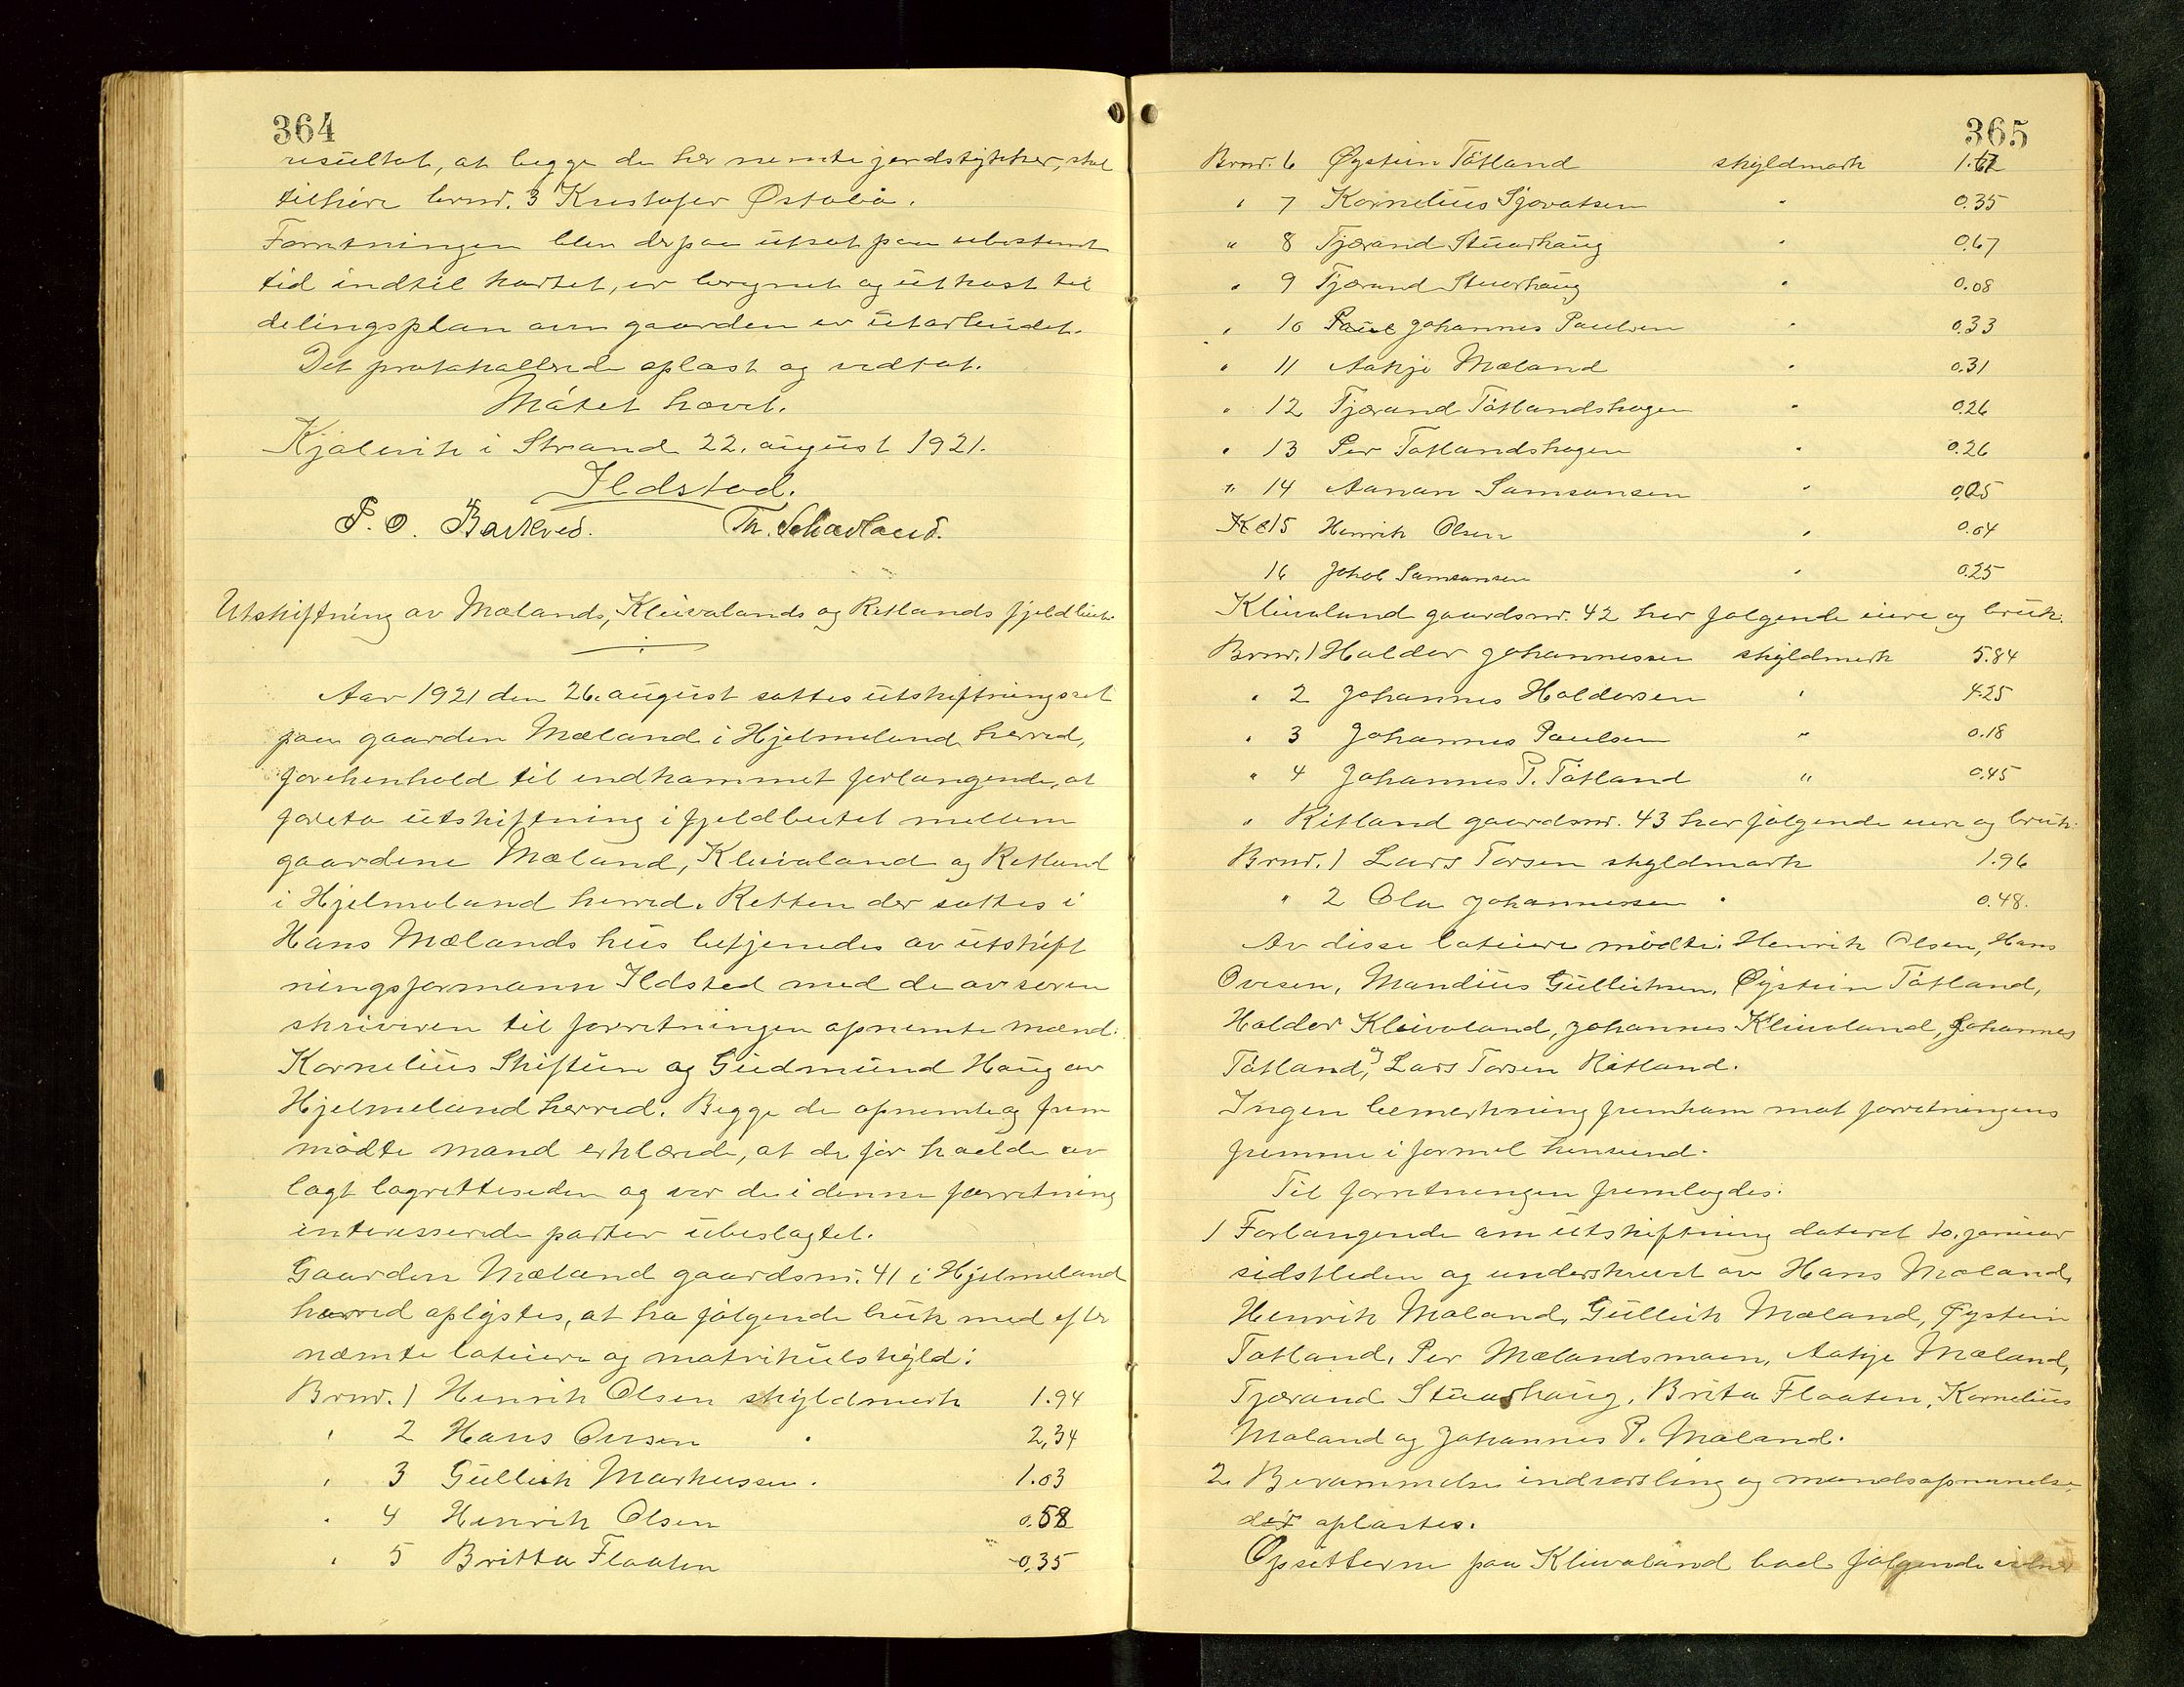 364
resultat, at begge de her nemte jordstykker, skal
tilhöre brnr. 3 Kristofer Østabö.
Forretningen blev derpaa utsat paa ubestemt
tid indtil kartet, er beregnet og utkast til
delingsplan avm gaarden er utarbeidet.
Det protokollerede oplæst og vedtat.
Mötet hævet.
Kjølevik i Strand 22. august 1921.
Ildstad.
P. O. Barkved. Th. Schavland.
Utskiftning av Mælands, Kleivalands og Retlands fjeldbeite.
Aar 1921 den 26. august sattes utskiftningsret
paa gaarden Mæland i Hjelmeland herred,
forehenhold til indkommet forlangende, at
foreta utskiftning i fjeldbeitet mellem
gaardene Mæland, Kleivaland og Retland
i Hjelmeland herred. Retten der sattes i
Hans Mælands hus betjenedes av utskift
ningsformann Ildsted med de av soren
skriveren til forretningen opnemte mænd:
Kornelius Skiftun og Gudmund Haug av
Hjelmeland herred. Begge de opnemte og frem
mödte mænd erklærede, at de för hadde av
lagt lagretteseden og var de i denne forretning
interesserede parter ubeslagtet.
Gaarden Mæland gaardsnr. 41 i Hjelmeland
herred oplystes, at ha fölgende bruk med efter
næmte lateiere og matrikulskyld:
Brnr. 1 Henrik Olsen skyldmark 1.94
" 2 Hans Ovesen " 2,34
" 3 Gullich Markussen " 1.03
" 4 Henrik Olsen 0.58
" 5 Britta Flaaten 0.35
365
Brnr. 6 Øystein Tötland skyldmark 1.62
" 7 Kornelius Sjovatsen " 0.35
" 8 Tjærand Stuarhaug " 0.67
" 9 Tjærand Stuarhaug " 0.08
" 10 Paul Johannes Paulsen " 0.33
" 11 Aakje Mæland " 0.31
" 12 Tjærand Tötlandshagen " 0.26
" 13 Per Tøtlandshagen " 0.26
" 14 Aanan Samsonsen " 0.05
15 Henrik Olsen " 0.04
16 Jakob Samsonsen " 0.25
Kleivaland gaardsnr. 42 har følgende eiere og bruk:
Brnr. 1 Haldor Johannessen skyldmark 5.84
" 2 Johannes Haldorsen " 4.25
" 3 Johannes Paulsen " 0.18
" 4 Johannes P. Tötland " 0.45
" Ritland gaardsnr. 43 har fölgende eiere og bruk:
Brnr. 1 Lars Torsen skyldmark 1.96
" 2 Ola Johannessen " 0.48.
Av disse loteiere mödte: Henrik Olsen, Hans
Ovesen, Mandius Gullichsen, Øystein Tötland,
Haldor Kleivaland, Johannes Kleivaland, Johannes
Tötland, og Lars Torsen Ritland.
Ingen bemerkning fremkom mot forretningens
fremme i formel henseend.
Til forretningen fremlagdes:
1 Forlangende om utskiftning dateret 10. januar
sidstleden og underskrevet av Hans Mæland,
Henrik Mæland, Gullich Mæland, Øystein
Tøtland, Per Mælandsmoen, Aakje Mæland,
Tjærand Stuarhaug, Brita Flaaten, Kornelius
Mæland og Johannes P. Mæland.
2. Berammelse indvarsling og mandsopnævnelse,
der oplæstes.
Opsitterne paa Kleivaland bad fölgende